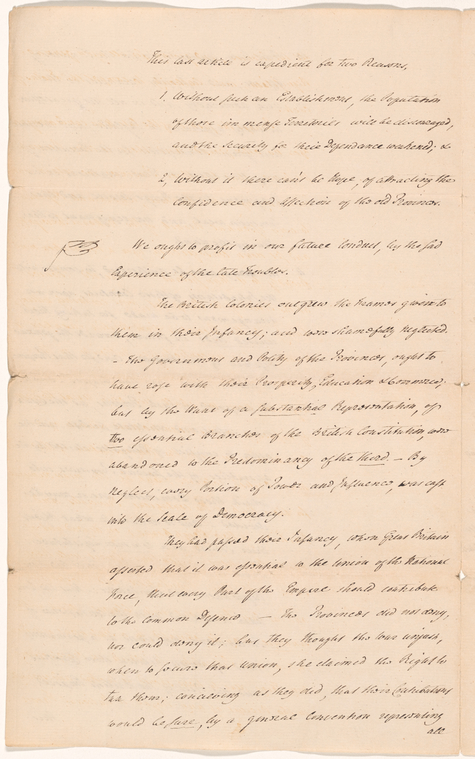 This last article is expedient for two Reasons,
1, Without such an Establishment, the Population
of those immense Territories will be discouraged,
and the Security for their Dependance weakend; &
2, Without it there can't be Hope, of attracting the
Confidence and Affection of the old Provinces.
We ought to profit in our future Conduct, by the sad
Experience of the late Troubles.
The British Colonies outgrew the Frames given to
them in their Infancy; and were shamefully neglected
– The Government and Polity of the Provinces, ought to
have rose with their Prosperity, Education & Commerce;
but by the Want of a substantial Representation, of
two essential Branches of the British Constitution, were
abandoned to the Predominancy of the third. – By
Neglect, every Portion of Power and Influence, was cast
into the Scale of Democracy.
They had passed their Infancy, when Great Britain
asserted that it was essential to the Union of the National
Force, that every Part of the Empire should contribute
to the Common Defence – The Provinces did not deny,
nor could deny it; but they thought the War unjust,
when to secure that Union, she claimed the Right to
tax them; conceiving as they did, that their Contributions
would be sure, by a general Convention representing
all